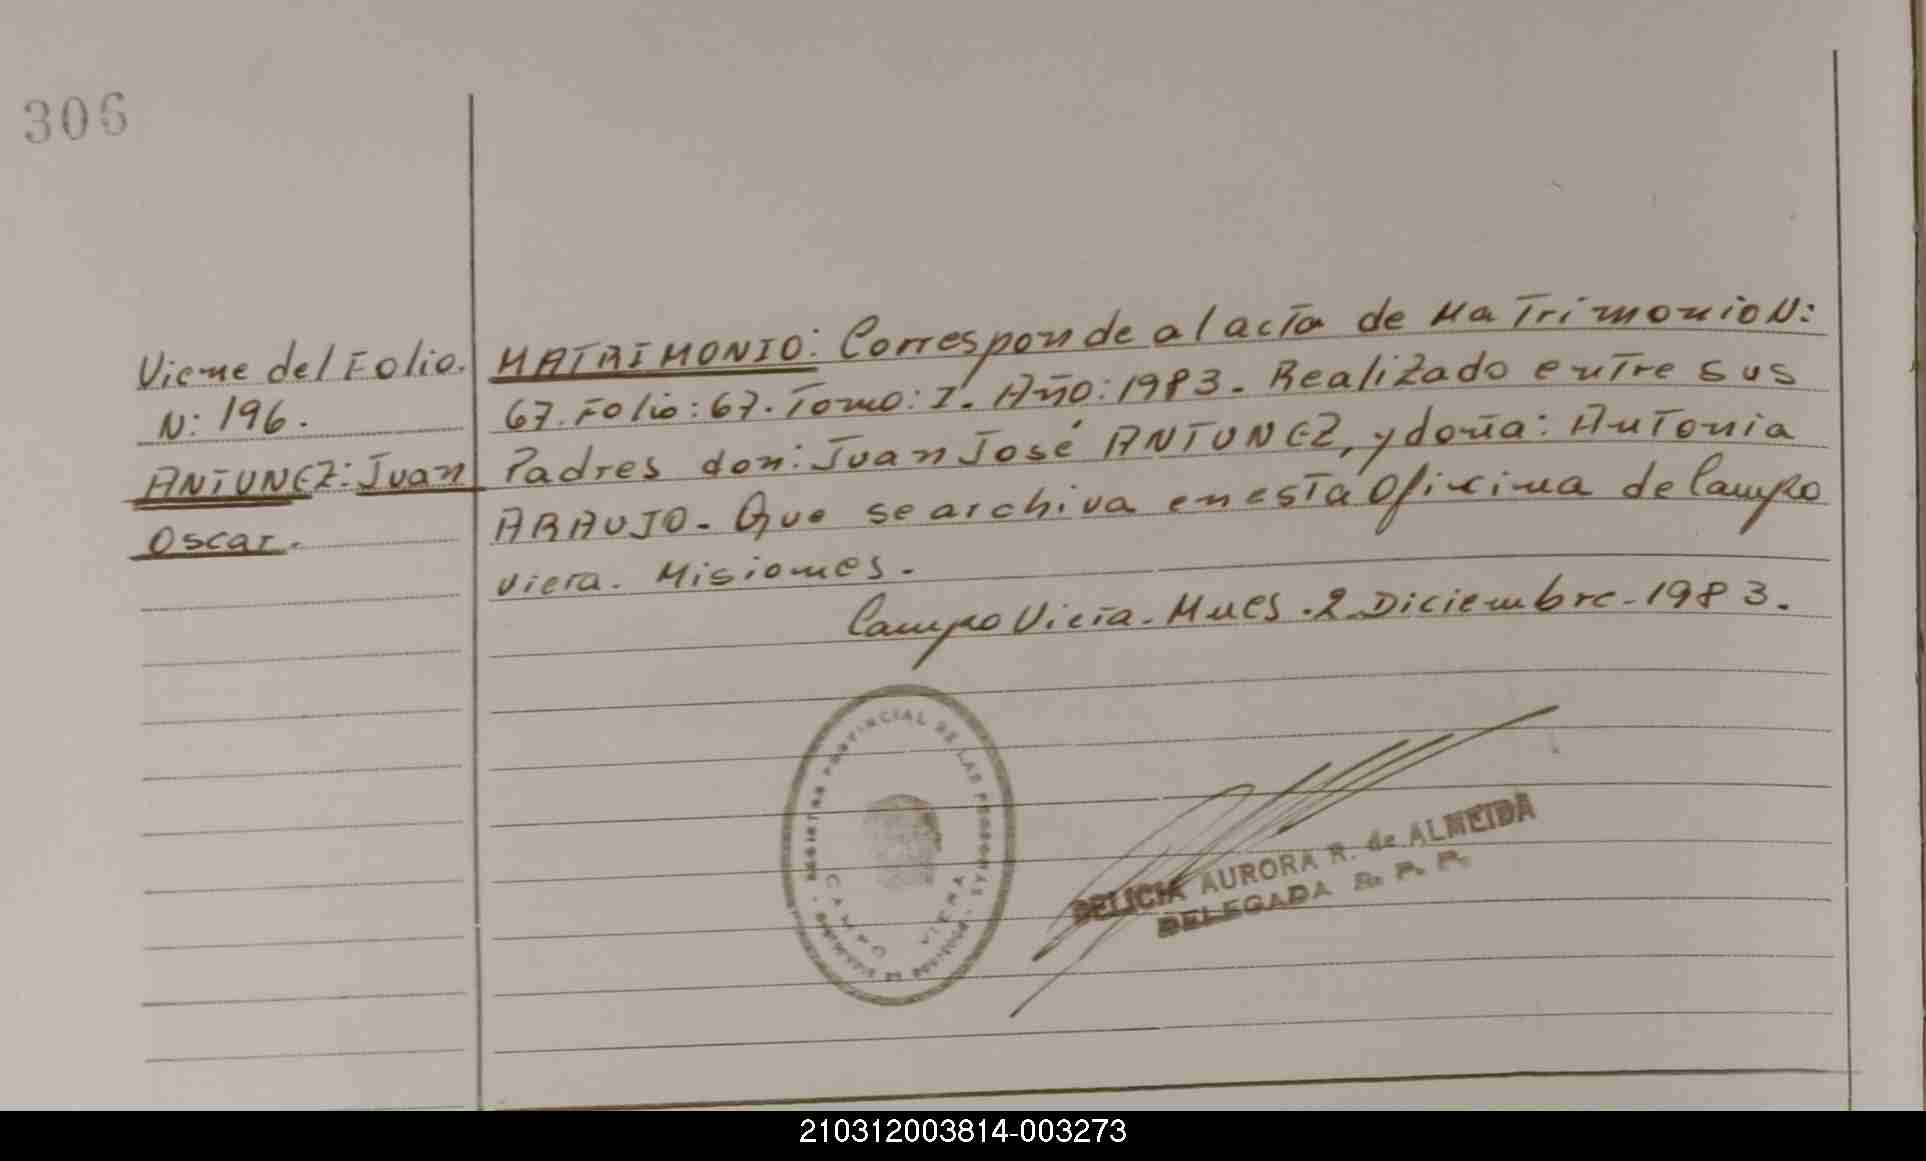 306
Viene del Folio.
N: 196.
ANTUNEZ: Juan
Oscar.
MATRIMONIO: Corresponde al acta de Matrimonio N:
67. Folio: 67. Tomo: I. Año: 1983. Realizado entre sus
Padres don: Juan José ANTUNEZ, y doña: Antonia
ARAUJO. Que se archiva en esta Oficina de Campo
Viera. Misiones.
Campo Viera. Mnes. 2 Diciembre. 1983.
PROVINCIAL DE LAS PERSONAS
CAMPO VIERA
DELICIA AURORA R. de ALMEIDA
DELEGADA R. P. P.
210312003814-003273